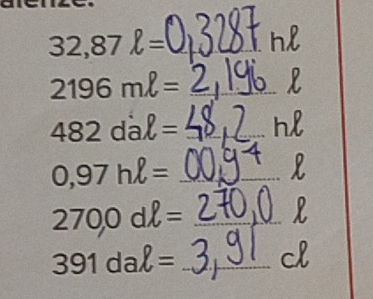 32,87 ℓ = 0,3287 hℓ
2196 mℓ = 2,196 ℓ
482 daℓ = 48,2 hℓ
0,97 hℓ = 00,97 ℓ
270,0 dℓ = 270,0 ℓ
391 daℓ = 3,91 cℓ